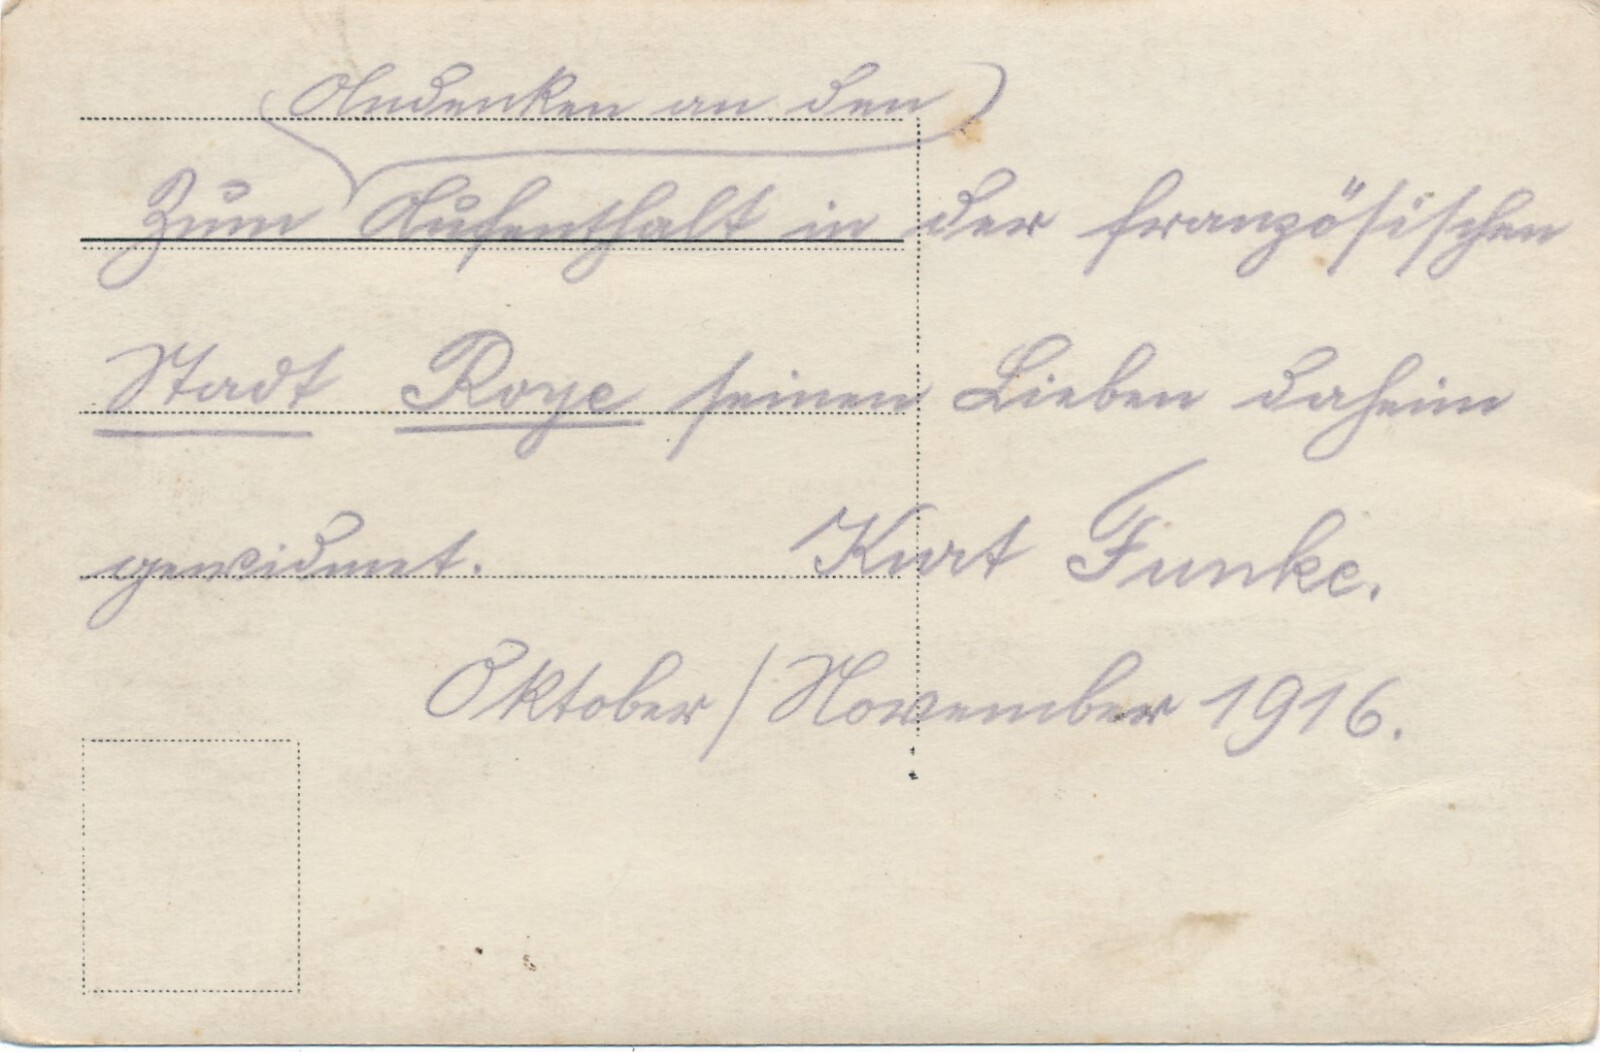 Andenken an den
Zum Aufenthalt in der französischen
Stadt Roye seinen Lieben daheim
gewidmet. Kurt Funke.
Oktober/November 1916.